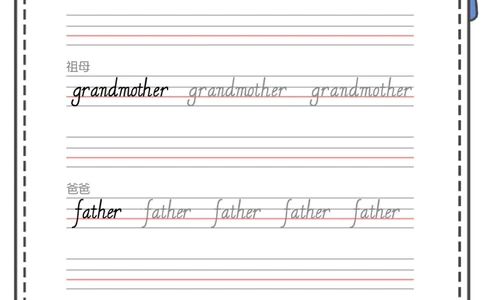 祖母
grandmother grandmother grandmother
爸爸
father father father father father